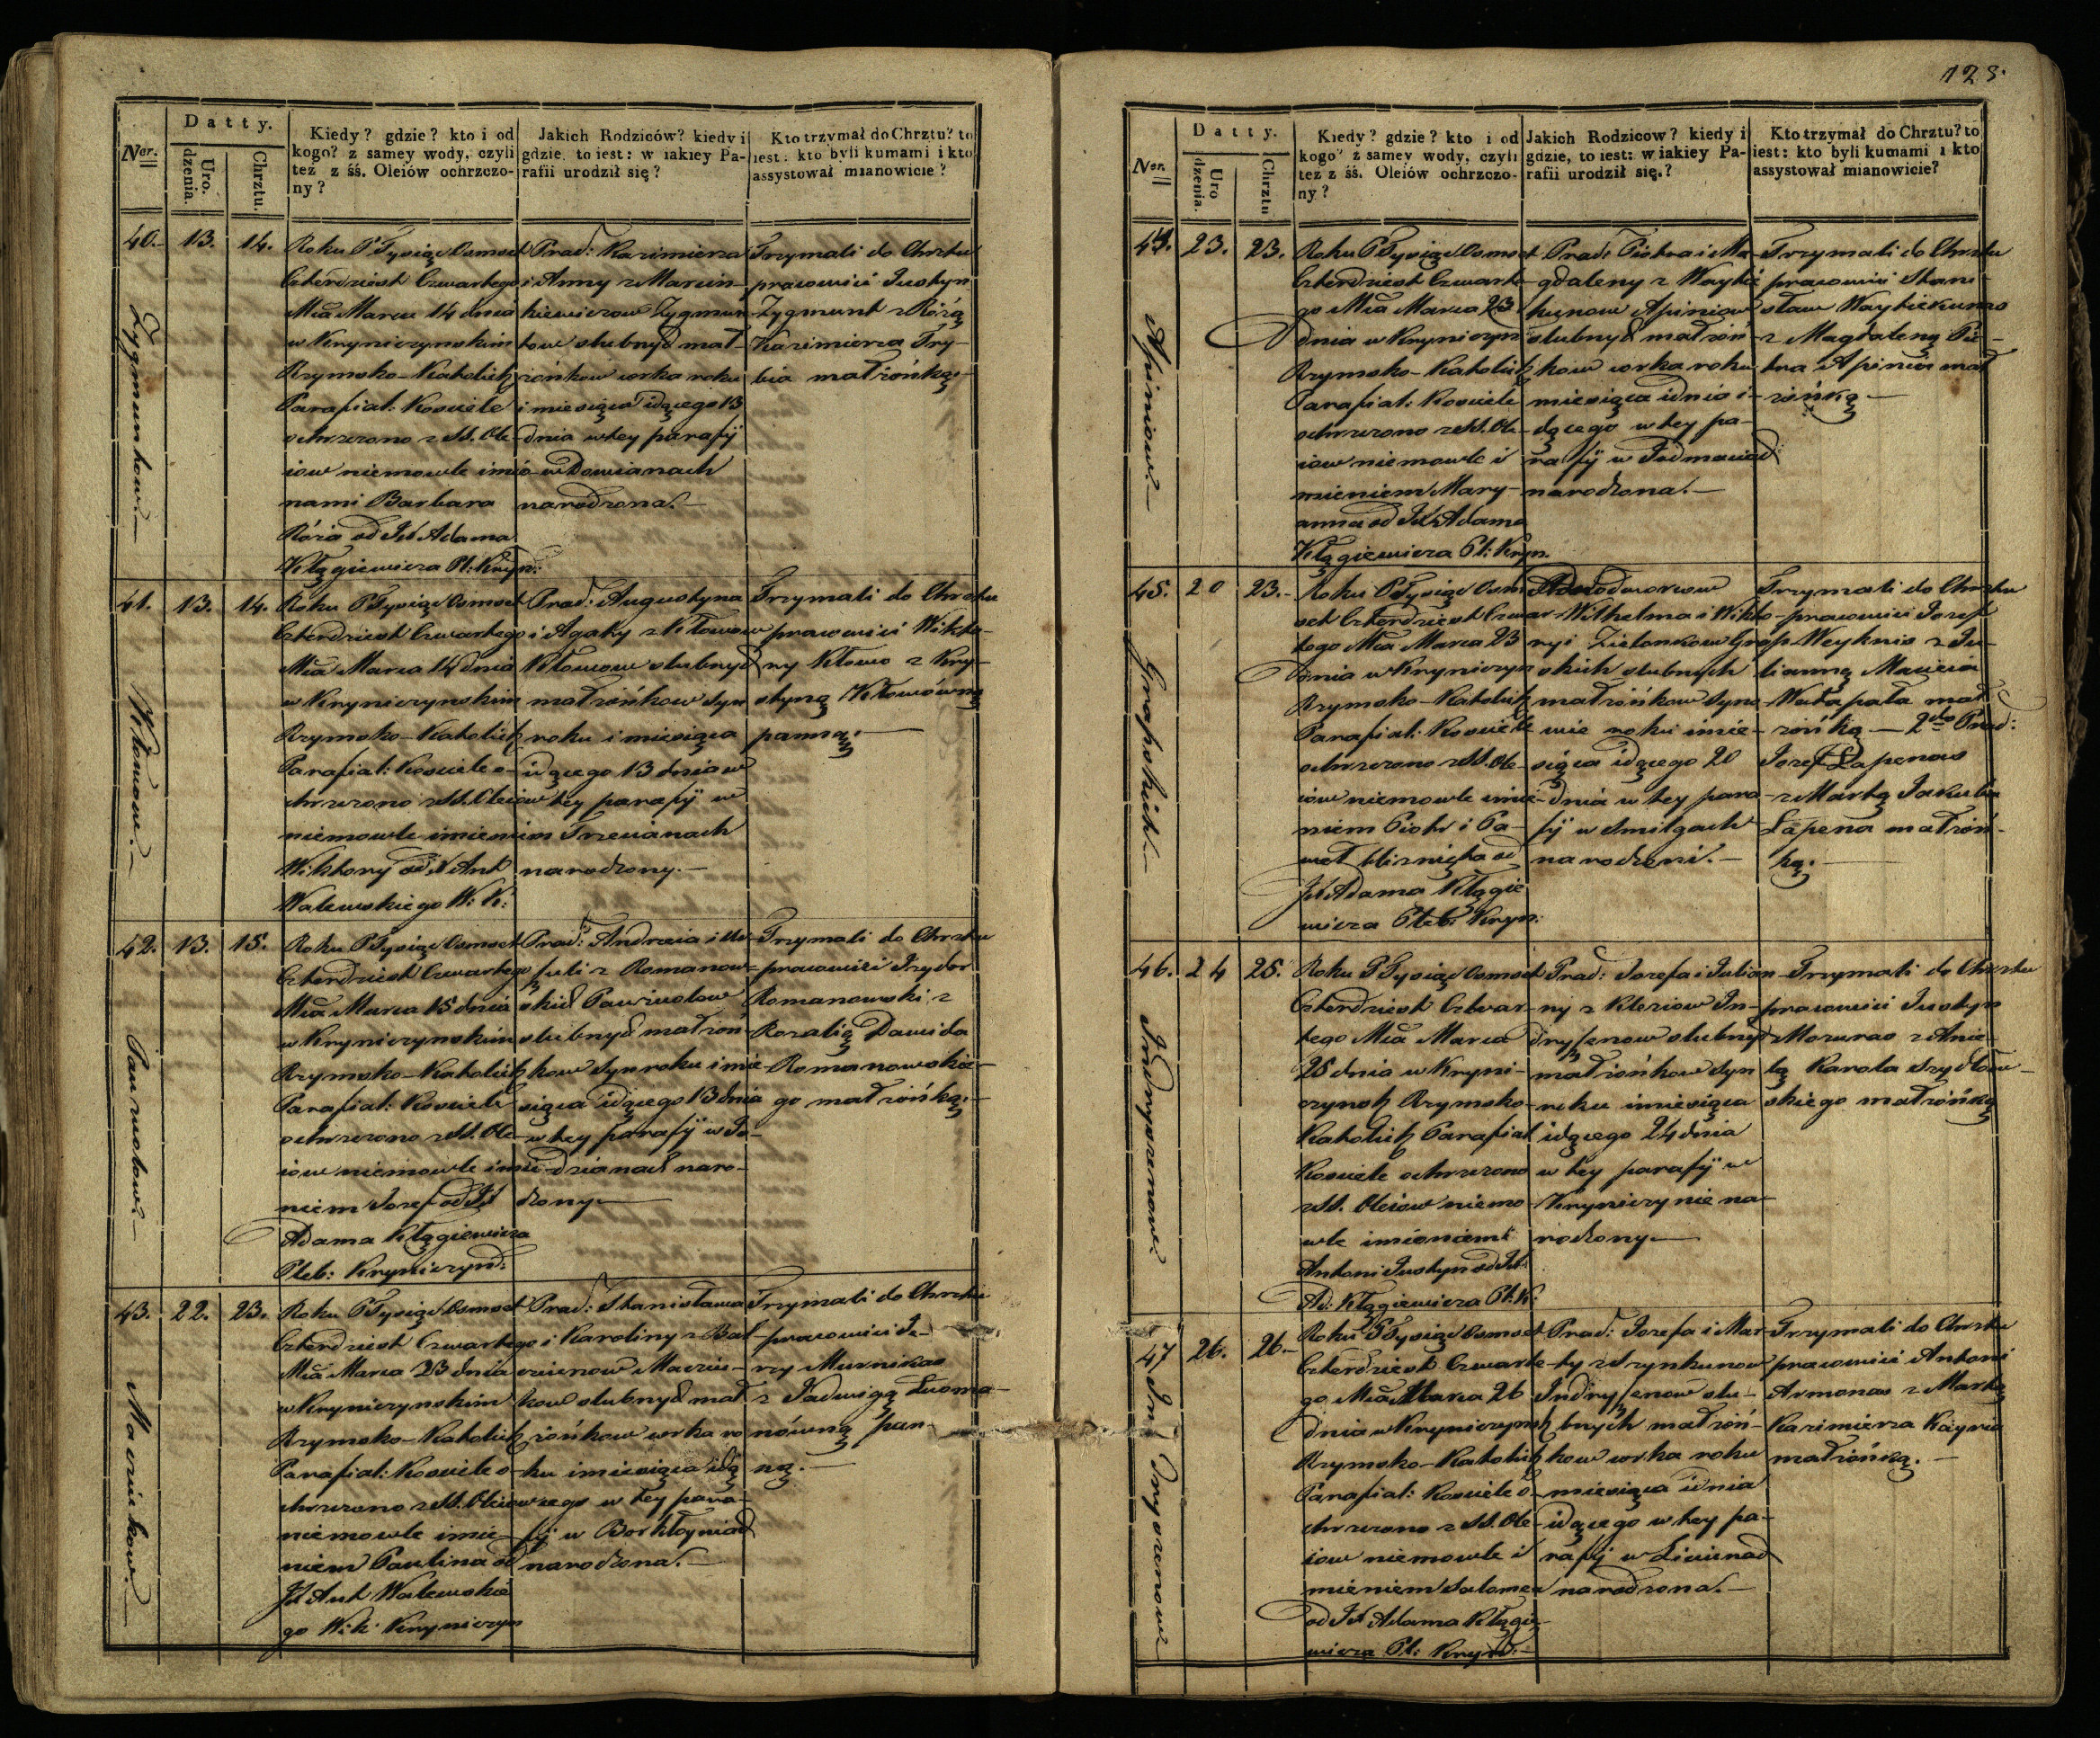 Ner.
Datty.
Uro.
dzenia.
Chrztu.
Kiedy? gdzie? kto i od
kogo? z samey wody, czyli
tez z śś. Oleiów ochrzczo-
ny?
Jakich Rodziców? kiedy i
gdzie, to iest: w iakiey Pa-
rafii urodził się?
Kto trzymał do Chrztu? to
iest: kto byli kumami i kto
assystował mianowicie?
40.
Zygmuntow.
13.
14.
Roku P Tysiąc Osmset
Czterdziest Czwartego
Mca Marca 14 dnia
w Kryniczynskim
Rzymsko-Katolick
Parafial: Kosciele
ochrzczono z SS. Ole-
iow niemowle imio-
nami Barbara
Róża od Jx Adama
Kłągiewicza Pl: Kryn:
Prad: Kazimierza
i Anny z Marcin-
kiewiczow Zygmun-
tow slubnych mał-
żónkow corka roku
i miesiąca idącego 13
dnia w tey parafij
w Dowianach
narodzona.
Trzymali do Chrztu
pracowici Justyn
Zygmunt z Różą
Kazimierza Try-
bia małżónką.
41.
Kłowow.
13.
14.
Roku P Tysiąc Osmset
Czterdziest Czwartego
Mca Marca 14 dnia
w Kryniczynskim
Rzymsko-Katolick
Parafial: Kosciele o-
chrzczono z SS. Oleiow
niemowle imieniem
Wiktory od Jx Ant
Walewskiego W. K:
Prad: Augustyna
i Agaty z Kłowow
Kłowow slubnych
małżónkow syn
roku i miesiąca
idącego 13 dnia w
tey parafij w
Trzecianach
narodzony.
Trzymali do Chrztu
pracowici Wikto-
ry Kłowo z Kry-
styną Kłowówną
panną.
42.
13.
15.
Roku P Tysiąc Osmset
Czterdziest Czwartego
Mca Marca 15 dnia
w Kryniczynskim
Rzymsko-Katolick
Parafial: Kosciele
ochrzczono z SS. Ole-
iow niemowle imie-
niem Jozef od Jx
Adama Kłągiewicza
Pleb: Kryniczyn:
Prad: Andrzeia i Ur-
szuli z Romanow-
skich
slubnych małżón-
kow syn roku i mie-
siąca idącego 13 dnia
w tey parafij w Ja-
dzianach naro-
dzony
Trzymali do Chrztu
pracowici Jzydor
Romanowski z
Rozalią Dawida
Romanowskie-
go małżónką.
43.
Macziukow.
22.
23.
Roku P Tysiąc Osmset
Czterdziest Czwartego
Mca Marca 23 dnia
w Kryniczynskim
Rzymsko-Katolick
Parafial: Kosciele o-
chrzczono z SS. Oleiow
niemowle imie-
niem Paulina od
Jx Ant Walewskie
go Wik: Kryniczyn
Prad: Stanisława
i Karoliny z Bal-
czienow Macziu-
kow slubnych mał-
żónkow corka ro
ku i miesiąca idą
cego w tey para-
fij w
narodzona.
Trzymali do Chrztu
pracowici Je-
rzy Murnikas
z Jadwigą Luoma-
nówną pan-
ną.
123.
Ner.
Datty.
Uro
dzenia.
Chrztu
Kiedy? gdzie? kto i od
kogo? z samey wody, czyli
tez z śś. Oleiów ochrzczo-
ny?
Jakich Rodzicow? kiedy i
gdzie, to iest: w iakiey Pa-
rafii urodził się?
Kto trzymał do Chrztu? to
iest: kto byli kumami i kto
assystował mianowicie?
44.
Apiniow.
23.
23.
Roku P Tysiąc Osmset
Czterdziest Czwarte-
go Mca Marca 23
dnia w Kryniczyn
Rzymsko-Katolick
Parafial: Kosciele
ochrzczono z SS. Ole-
iow niemowle i
mieniem Mary-
anna od Jx Adama
Kłągiewicza Pl: Kryn.
Prad: Piotra i Ma-
gdaleny z Waytie
kunow Apiniow
slubnych małżón-
kow corka roku
miesiąca i dnia i-
dącego w tey pa-
rafij w Judmaciach
narodzona.
Trzymali do Chrztu
pracowici Stani-
sław Waytiekunas
z Magdaleną Pio-
tra Apinia mał
żónką
45.
Grapskich
20
23.
Roku P Tysiąc Osm
set Czterdziest Czwar-
tego Mca Marca 23
dnia w Kryniczyn
Rzymsko-Katolick
Parafial: Kosciele
ochrzczono z SS. Ole-
iow niemowle imie-
niem Piotr i Pa-
weł bliznięta od
Jx Adama Kłągie
wicza Pleb: Kryn:
Wilhelma i Wikto-
ryi Zielonkow Grap-
skich slubnych
małżónkow syno-
wie roku i mie-
siąca idącego 20
dnia w tey para-
fij w Smilgach
narodzeni.
Trzymali do Chrztu
pracowici Jozef
Weyknis z Ju-
lianną Macieia
Watapata mał
żónką - 2do Prad:
Jozef Łapenas
z Martą Jakuba
Łapena małżón-
ką.
46.
Indryszenow
24
25.
Roku P Tysiąc Osmset
Czterdziest Czwar-
tego Mca Marca
25 dnia w Kryni-
czynsk Rzymsko-
Katolick Parafial
Kosciele ochrzczono
z SS. Oleiow niemo-
wle imionami
Antoni Justyn od Jx
Ad: Kłągiewicza Pl: K:
Prad: Jozefa i Julian-
ny z Kleziow In-
dryszenow slubnych
małżónkow syn
roku i miesiąca
idącego 24 dnia
w tey parafij w
Krynicznie na-
rodzony
Trzymali do Chrztu
pracowici Justyn
Mozuras z Anie-
lą Karola Szydłow-
skiego małżónką
47
In dryszenow
26.
26.
Roku P Tysiąc Osmset
Czterdziest Czwarte-
go Mca Marca 26
dnia w Kryniczynsk
Rzymsko-Katolick
Parafial: Kosciele o-
chrzczono z SS. Ole-
iow niemowle i
mieniem Salomea
od Jx Adama Kłągie-
wicza Pl: Kryn:
Prad: Jozefa i Mar-
ty z Strynkunow
Indryszenow slu-
bnych małżón-
kow corka roku
miesiąca i dnia
idącego w tey pa-
rafij w Licinach
narodzona.
Trzymali do Chrztu
pracowici Antoni
Armonas z Martą
Kazimierza Kayria
małżónką.